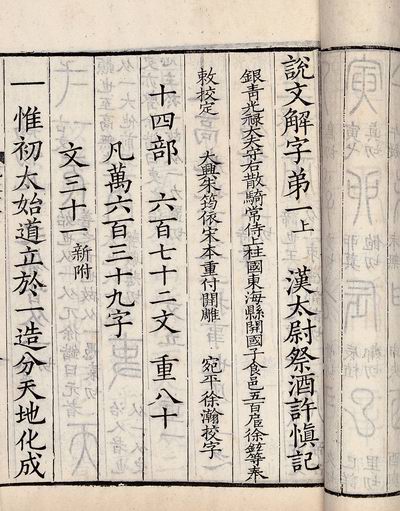 說文解字弟一上　漢太尉祭酒許愼記
銀青光祿大夫守右散騎常侍上柱國東海縣開國子食邑五百戶徐鉉等奉
敕校定　大興朱筠依宋本重付開雕　宛平徐瀚挍字
十四部　六百七十二文　重八十
凡萬六百三十九字
文三十一新附
一　惟初太始道立於一造分天地化成